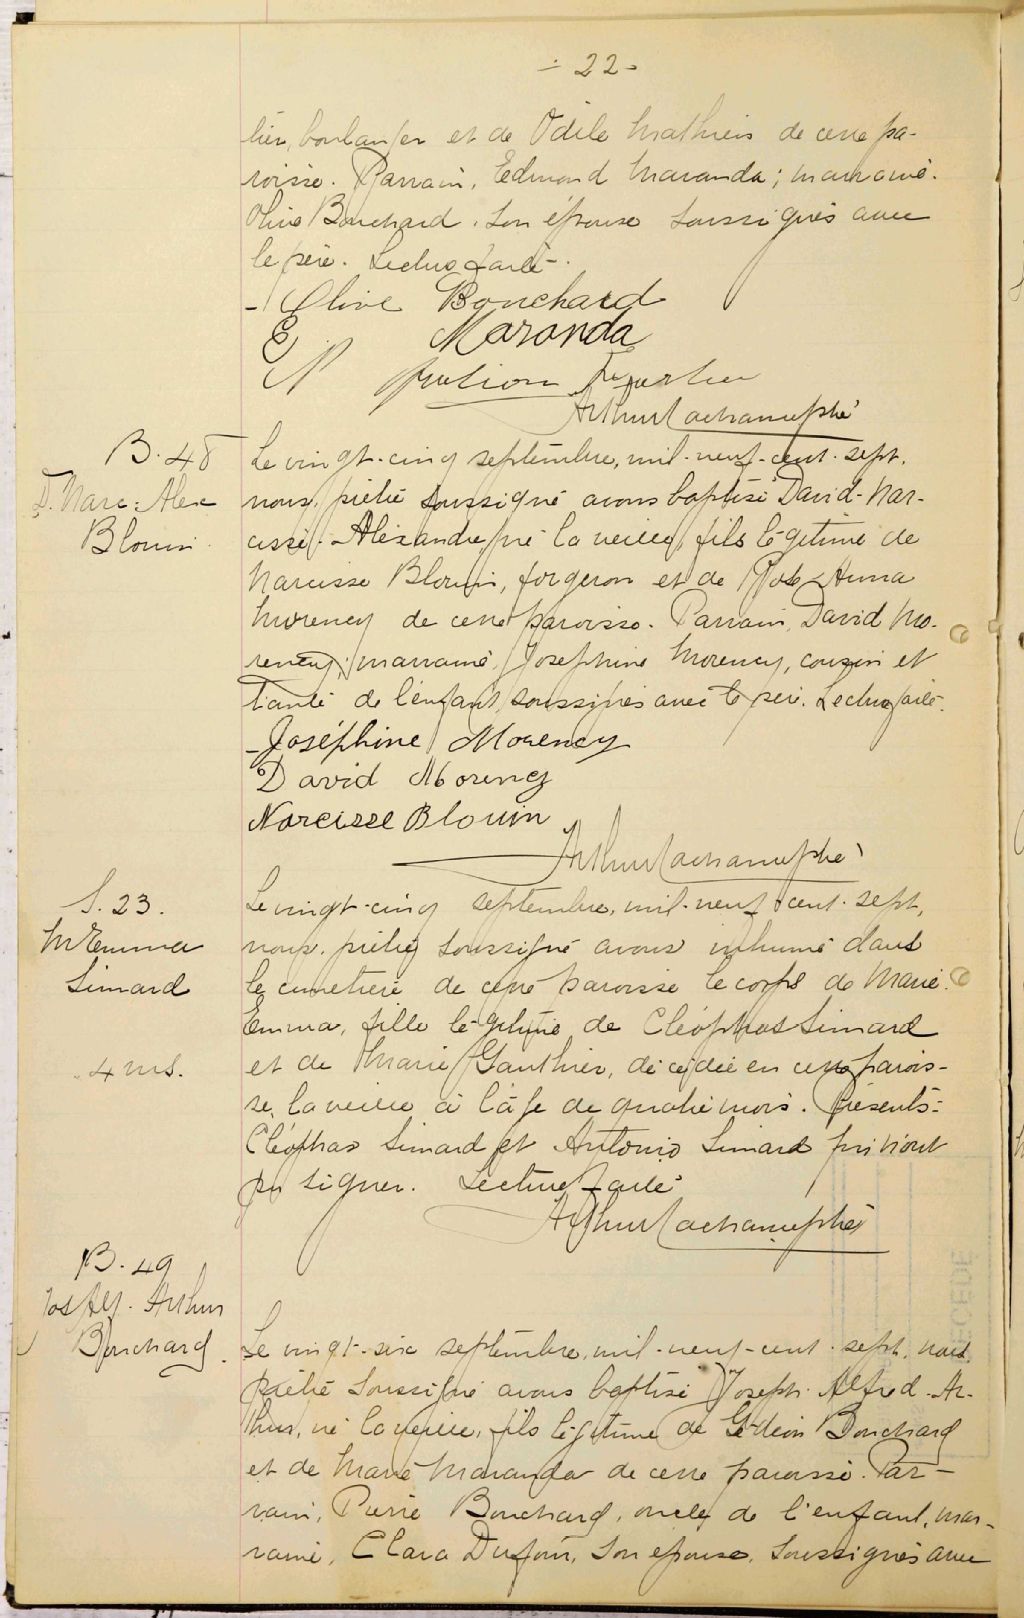 - 22 -
tier, boulanger et de Odile Mathieu de cette pa-
roisse. Parrain, Edmond Maranda; marraine.
Olive Bouchard. Son épouse soussignés avec
le père. Lecture faite.
- Olive Bouchard
E Maranda
N
Arthur Lachance ptre
B. 48
D. Narc. Alex
Blouin
Le vingt-cinq septembre, mil-neuf-cent-sept,
nous, prêtre soussigné avons baptisé David-Nar-
cisse-Alexandre, né la veille, fils légitime de
Narcisse Blouin, forgeron et de Rose-Anna
Morency de cette paroisse. Parrain, David Mo-
rency; marraine, Josephine Morency, cousin et
tante de l'enfant, soussignés avec le père. Lecture faite.
- Joséphine Morency
David Morency
Narcisse Blouin
Arthur Lachance ptre
S. 23.
M Emma
Simard
4 ms.
Le vingt-cinq septembre, mil-neuf cent-sept,
nous, prêtre soussigné avons inhumé dans
le cimetière de cette paroisse le corps de Marie.
Emma, fille légitime de Cléophas Simard
et de Marie Gauthier, décédée en cette parois-
se, la veille à l'âge de quatre mois. Présents:
Cléophas Simard et Antonio Simard qui n'ont
pu signer. Lecture faite
Arthur Lachance ptre
B. 49
Jos Alf. Arthur
Bouchard.
Le vingt-six septembre, mil-neuf-cent-sept, nous
prêtre soussigné avons baptisé Joseph-Alfred-Ar-
thur, né la veille, fils légitime de Gédéon Bouchard
et de Marie Maranda de cette paroisse. Par-
rain, Pierre Bouchard, oncle de l'enfant, mar-
raine, Clara Dufour, son épouse, soussignés avec